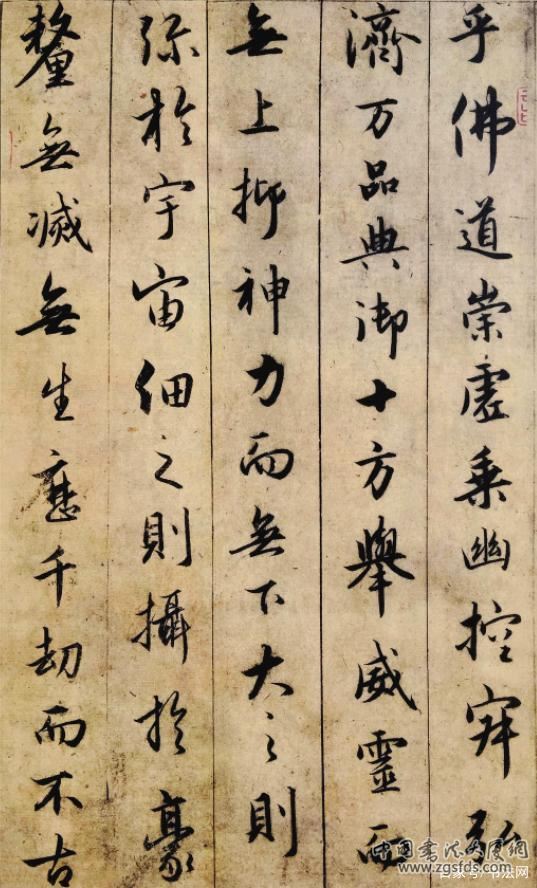 乎佛道崇虛乘幽控寂弘
濟万品典御十方舉威靈而
無上抑神力而無下大之則
弥於宇宙細之則攝於豪
釐無滅無生歷千劫而不古
中国书法大廈網
www.zgsfds.com
百家号/书法网